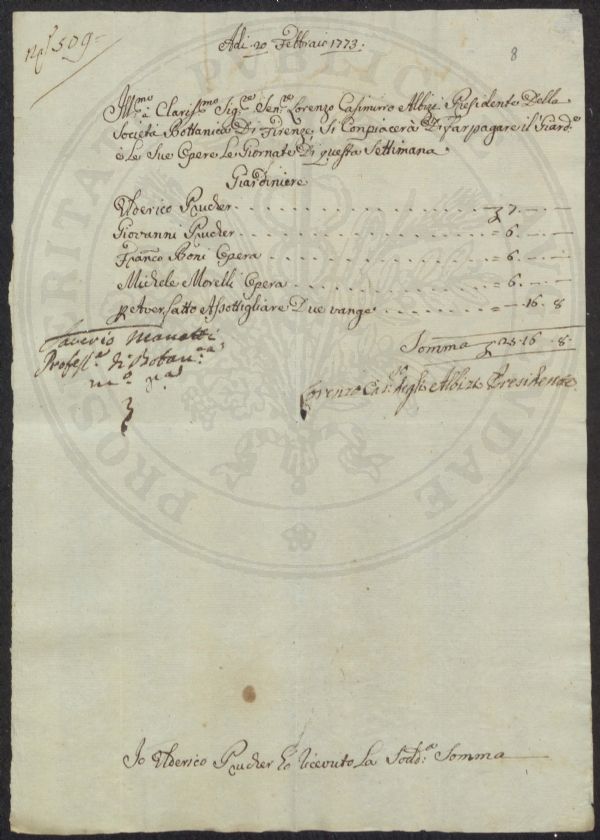 N° 509=
Adi 20 Febbraio 1773.
8
Ill:mo e Clariss:mo Sig:re Sen:re Lorenzo Casimirro Albizi Presidente Della
Società Bottanica Di Firenze, Si Conpiacerà Di far pagare il Giard:e
e Le Sue Opere Le Giornate Di questa Settimana
Giardiniere
Ulderico Prucher 7.—.—
Giovanni Prucher = 6.—.—
Fran:co Boni Opera = 6.—.—
Michele Morelli Opera = 6.—.—
P Aver fatto Assottigliare Due vange = —.16.8
Saverio Manetti
Profess:e di Botan:ca
Somma 25.16.8.
Lorenzo Cas:ro degli Albizi Presidente
PROSPERITATI PUBLICAE AUGENDAE
Io Ulderico Prucher ho ricevuto La Sodd:a Somma